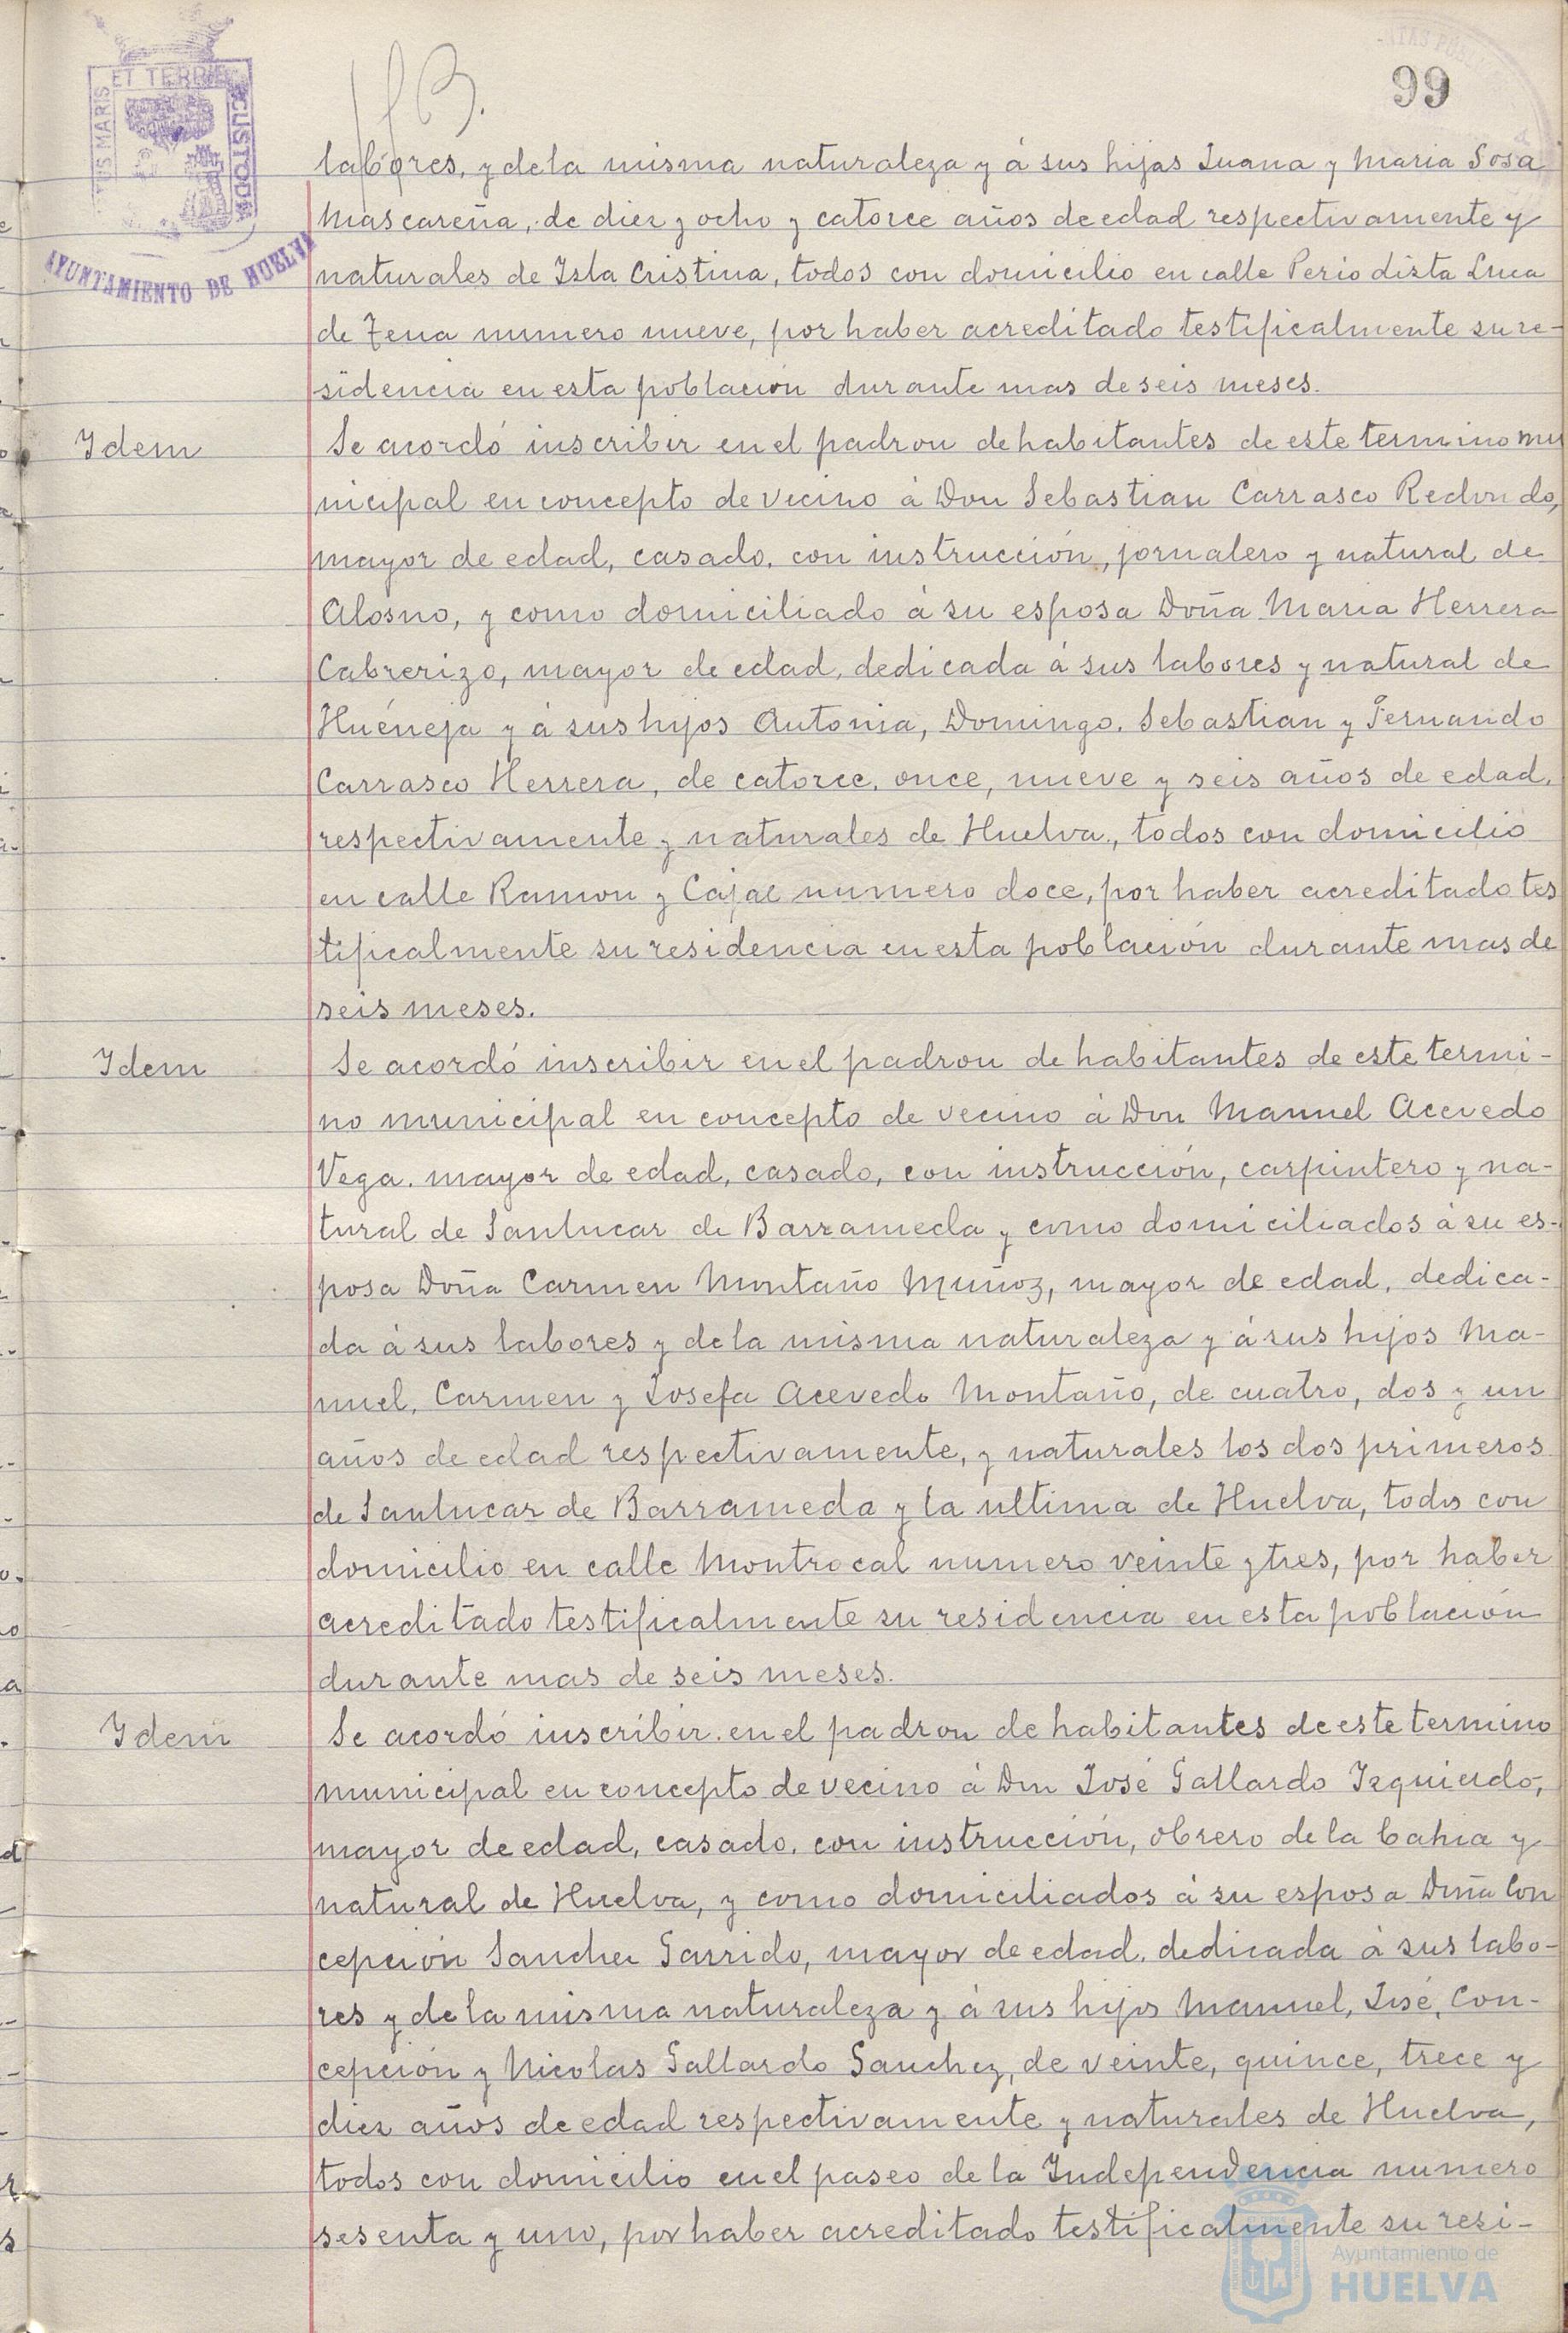 99
ET TERRE
CUSTODIA
TIS MARIS
AYUNTAMIENTO DE HUELVA
labores, y de la misma naturaleza y á sus hijas Juana y Maria Sosa
Mascareña, de diez y ocho y catorce años de edad respectivamente y
naturales de Isla Cristina, todos con domicilio en calle Periodista Luca
de Tena numero nueve, por haber acreditado testificalmente su re-
sidencia en esta población durante mas de seis meses.
Ydem
Se acordó inscribir en el padron de habitantes de este termino mu
nicipal en concepto de vecino á Don Sebastian Carrasco Redondo,
mayor de edad, casado, con instrucción, jornalero y natural de
Alosno, y como domiciliado á su esposa Doña Maria Herrera
Cabrerizo, mayor de edad, dedicada á sus labores y natural de
Huéneja y á sus hijos Antonia, Domingo, Sebastian y Fernando
Carrasco Herrera, de catorce, once, nueve y seis años de edad,
respectivamente y naturales de Huelva, todos con domicilio
en calle Ramon y Cajal numero doce, por haber acreditado tes
tificalmente su residencia en esta población durante mas de
seis meses.
Ydem
Se acordó inscribir en el padron de habitantes de este termi-
no municipal en concepto de vecino á Don Manuel Acevedo
Vega, mayor de edad, casado, con instrucción, carpintero y na-
tural de Sanlucar de Barrameda y como domiciliados á su es-
posa Doña Carmen Montaño Muñoz, mayor de edad, dedica-
da á sus labores y de la misma naturaleza y á sus hijos Ma-
nuel, Carmen y Josefa Acevedo Montaño, de cuatro, dos y un
años de edad respectivamente, y naturales los dos primeros
de Sanlucar de Barrameda y la ultima de Huelva, todos con
domicilio en calle Montrocal numero veinte y tres, por haber
acreditado testificalmente su residencia en esta población
durante mas de seis meses.
Ydem
Se acordó inscribir en el padron de habitantes de este termino
municipal en concepto de vecino á Don José Gallardo Izquierdo,
mayor de edad, casado, con instrucción, obrero de la bahia y
natural de Huelva, y como domiciliados á su esposa Doña Con
cepción Sanchez Garrido, mayor de edad, dedicada á sus labo-
res y de la misma naturaleza y á sus hijos Manuel, José, Con-
cepción y Nicolas Gallardo Sanchez, de veinte, quince, trece y
diez años de edad respectivamente y naturales de Huelva,
todos con domicilio en el paseo de la Independencia numero
sesenta y uno, por haber acreditado testificalmente su resi-
Ayuntamiento de
HUELVA